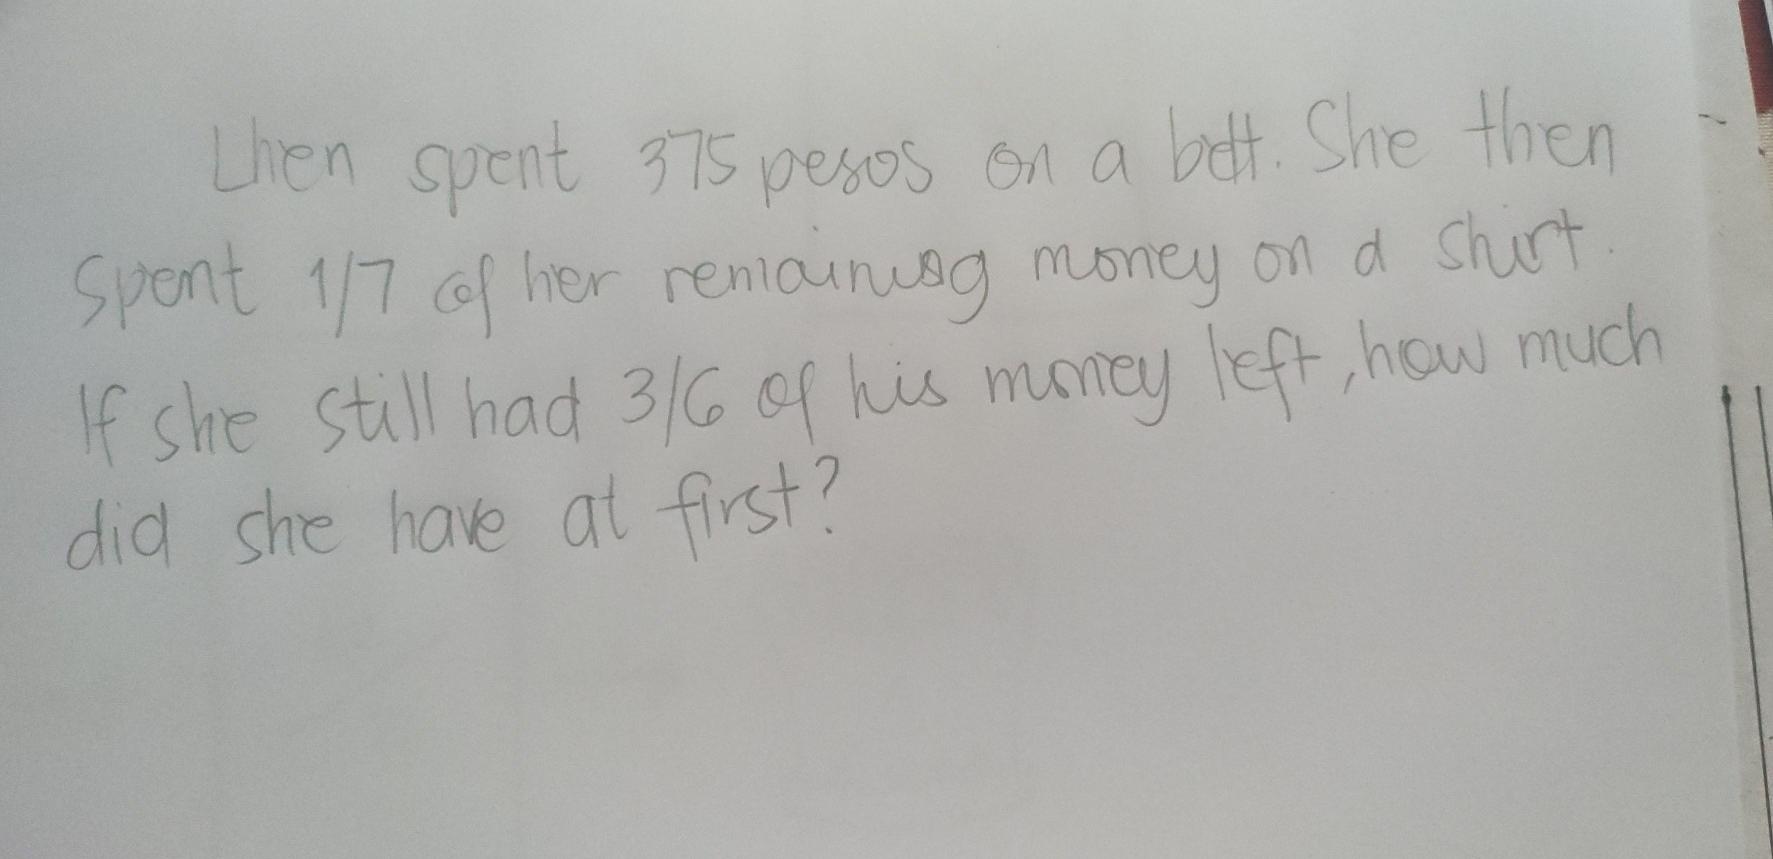 Lhen spent 375 pesos on a belt. She then
spent 1/7 of her remaining money on a shirt.
If she still had 3/6 of his money left, how much
did she have at first?